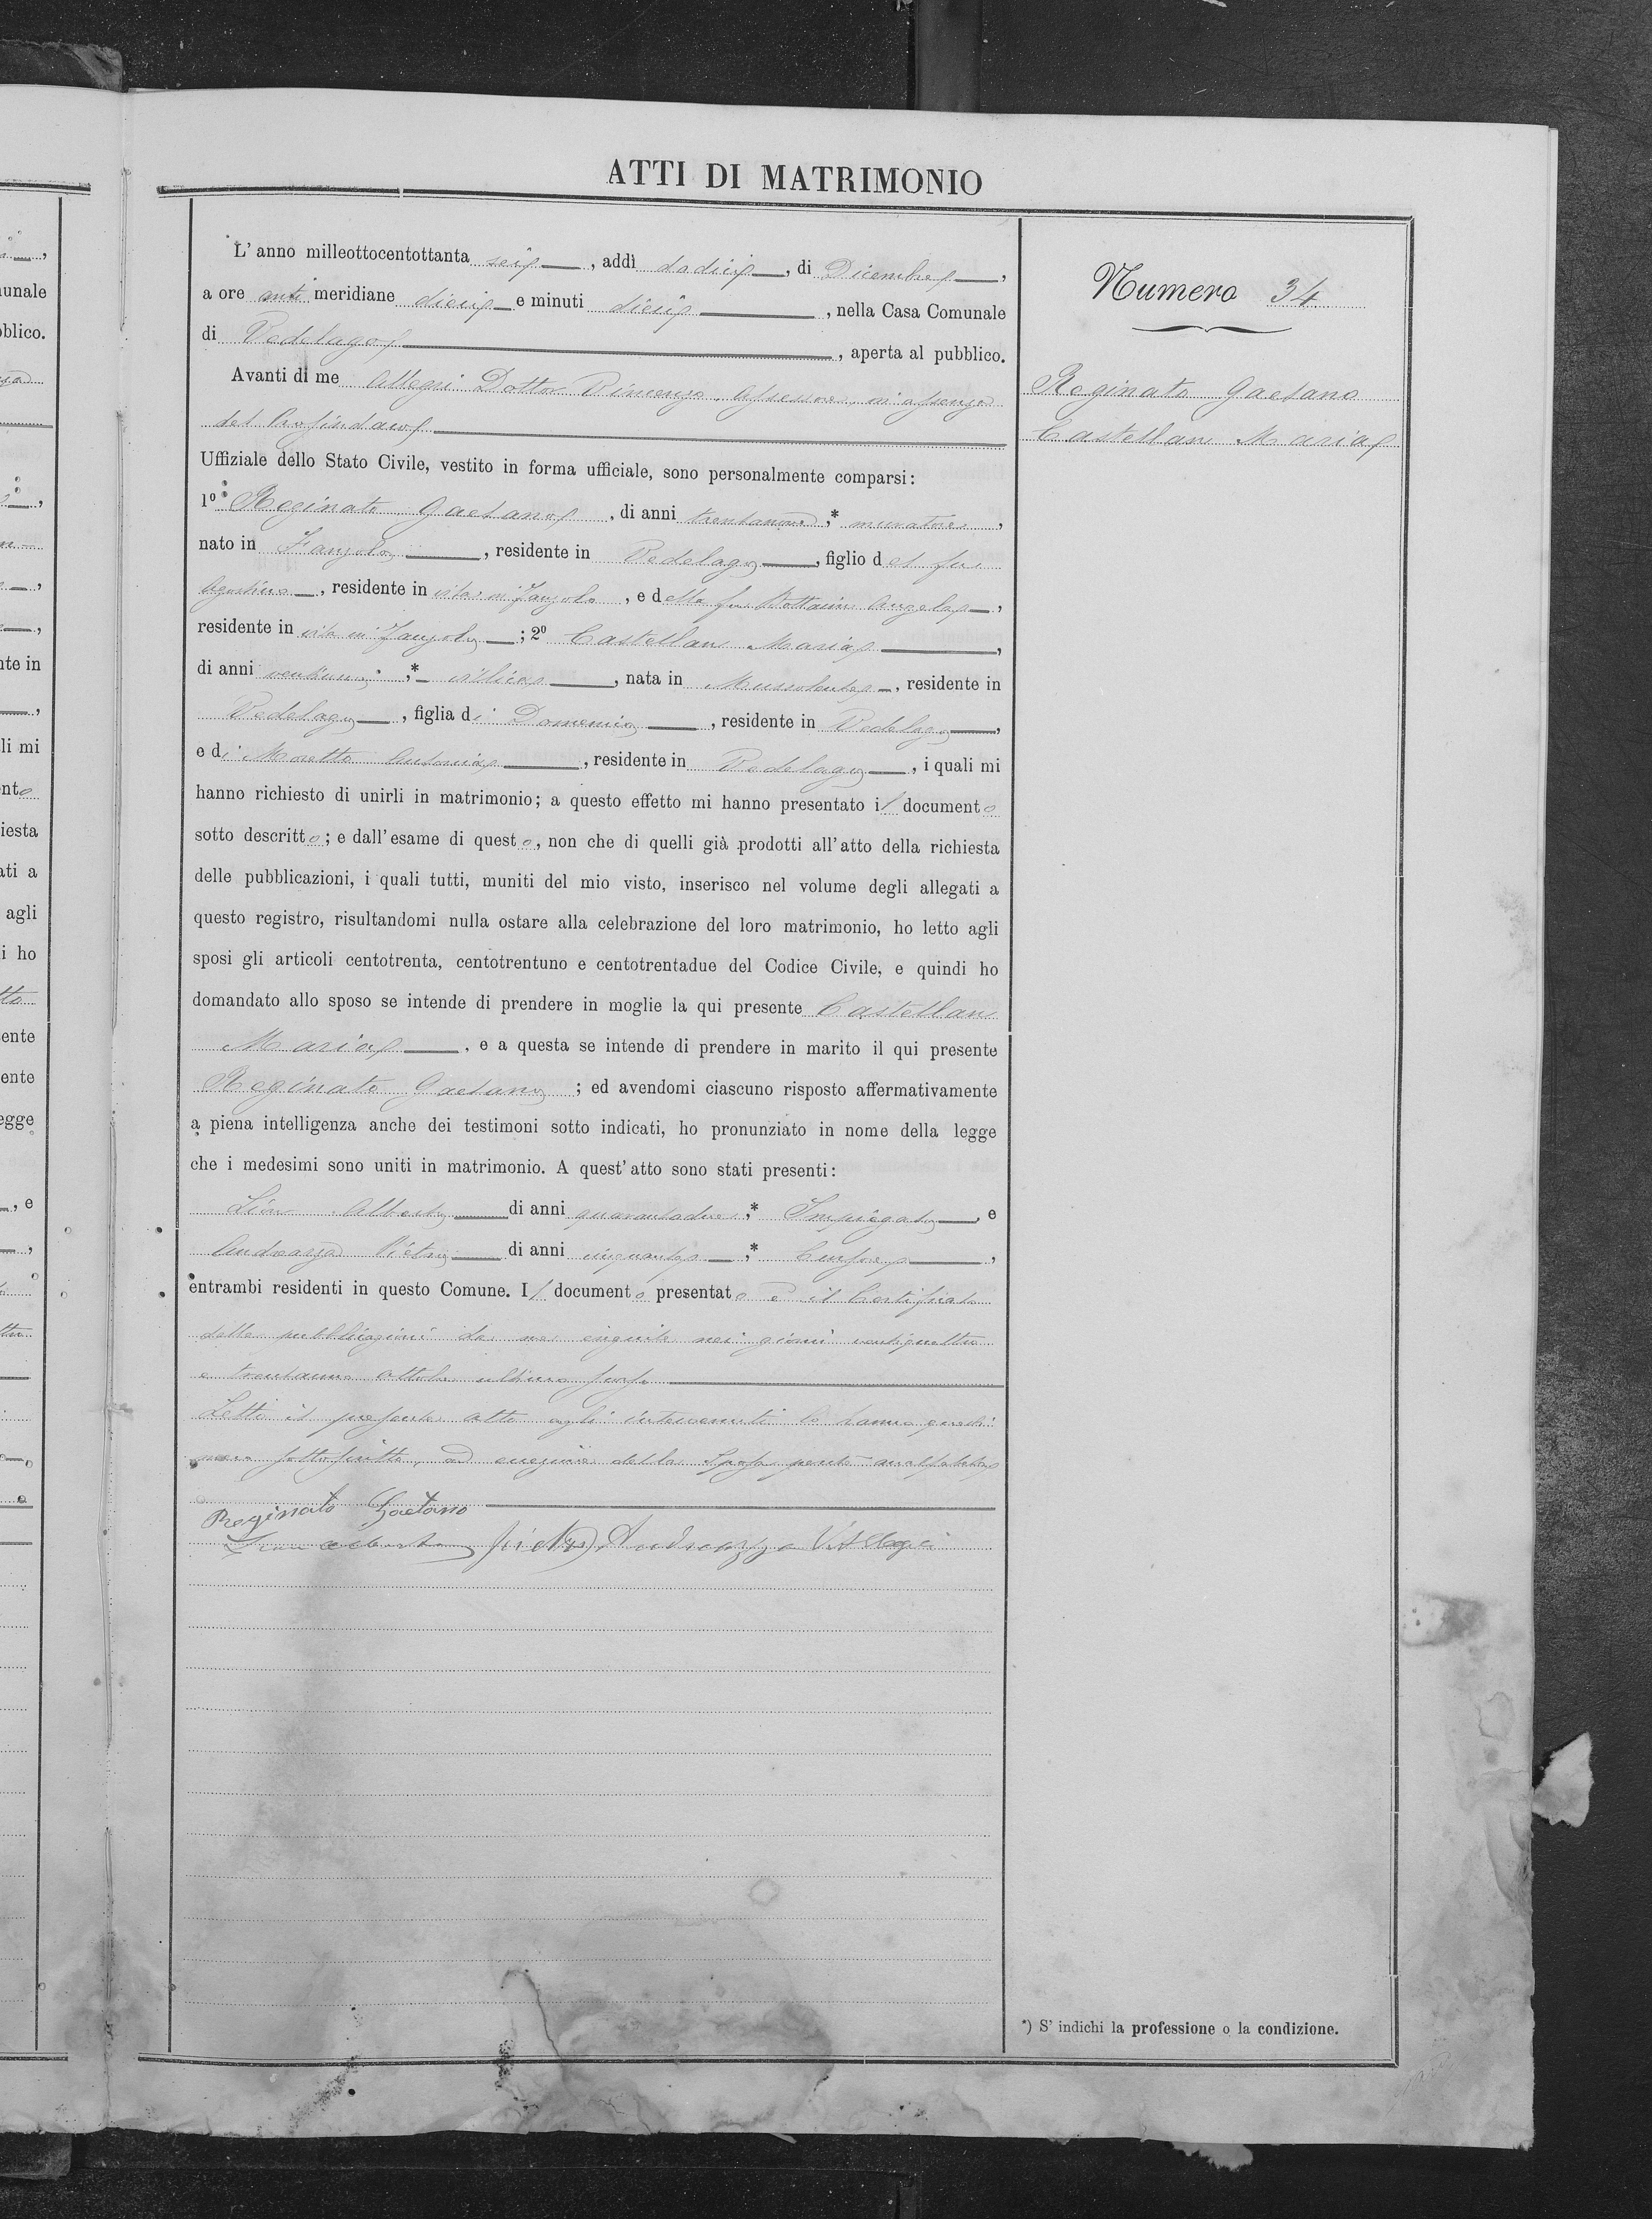 ATTI DI MATRIMONIO
L'anno milleottocentottanta sei, addì dodici, di Dicembre,
a ore anti meridiane dieci e minuti dieci, nella Casa Comunale
di Vedelago, aperta al pubblico.
Avanti di me Allegri Dottor Vincenzo Assessore in assenza
del Prosindaco
Uffiziale dello Stato Civile, vestito in forma ufficiale, sono personalmente comparsi:
1º Reginato Gaetano, di anni trentanove,* muratore,
nato in Fanzolo, residente in Vedelago, figlio del fu
Agostino, residente in vita in Fanzolo, e della fu Angela,
residente in vita in Fanzolo; 2º Castellan Maria,
di anni ventiuno,* villica, nata in Mussolente, residente in
Vedelago, figlia di Domenico, residente in Vedelago,
e di Moretto Antonia, residente in Vedelago, i quali mi
hanno richiesto di unirli in matrimonio; a questo effetto mi hanno presentato il documento
sotto descritto; e dall'esame di questo, non che di quelli già prodotti all'atto della richiesta
delle pubblicazioni, i quali tutti, muniti del mio visto, inserisco nel volume degli allegati a
questo registro, risultandomi nulla ostare alla celebrazione del loro matrimonio, ho letto agli
sposi gli articoli centotrenta, centotrentuno e centotrentadue del Codice Civile, e quindi ho
domandato allo sposo se intende di prendere in moglie la qui presente Castellan
Maria, e a questa se intende di prendere in marito il qui presente
Reginato Gaetano; ed avendomi ciascuno risposto affermativamente
a piena intelligenza anche dei testimoni sotto indicati, ho pronunziato in nome della legge
che i medesimi sono uniti in matrimonio. A quest'atto sono stati presenti:
Alberto di anni quarantadue,* Impiegato, e
Andreazza Pietro di anni cinquanta,* Cursore,
entrambi residenti in questo Comune. Il documento presentato è il Certificato
delle pubblicazioni da me eseguite nei giorni ventiquattro
e trentauno Ottobre ultimo scorso
Letto il presente atto agli intervenuti lo hanno quindi
meco sottoscritto, ad eccezione della Sposa perché analfabeta
Reginato Gaetano
Alberto Pietro Andreazza V Allegri
Numero 34
Reginato Gaetano
Castellan Maria
*) S'indichi la professione o la condizione.